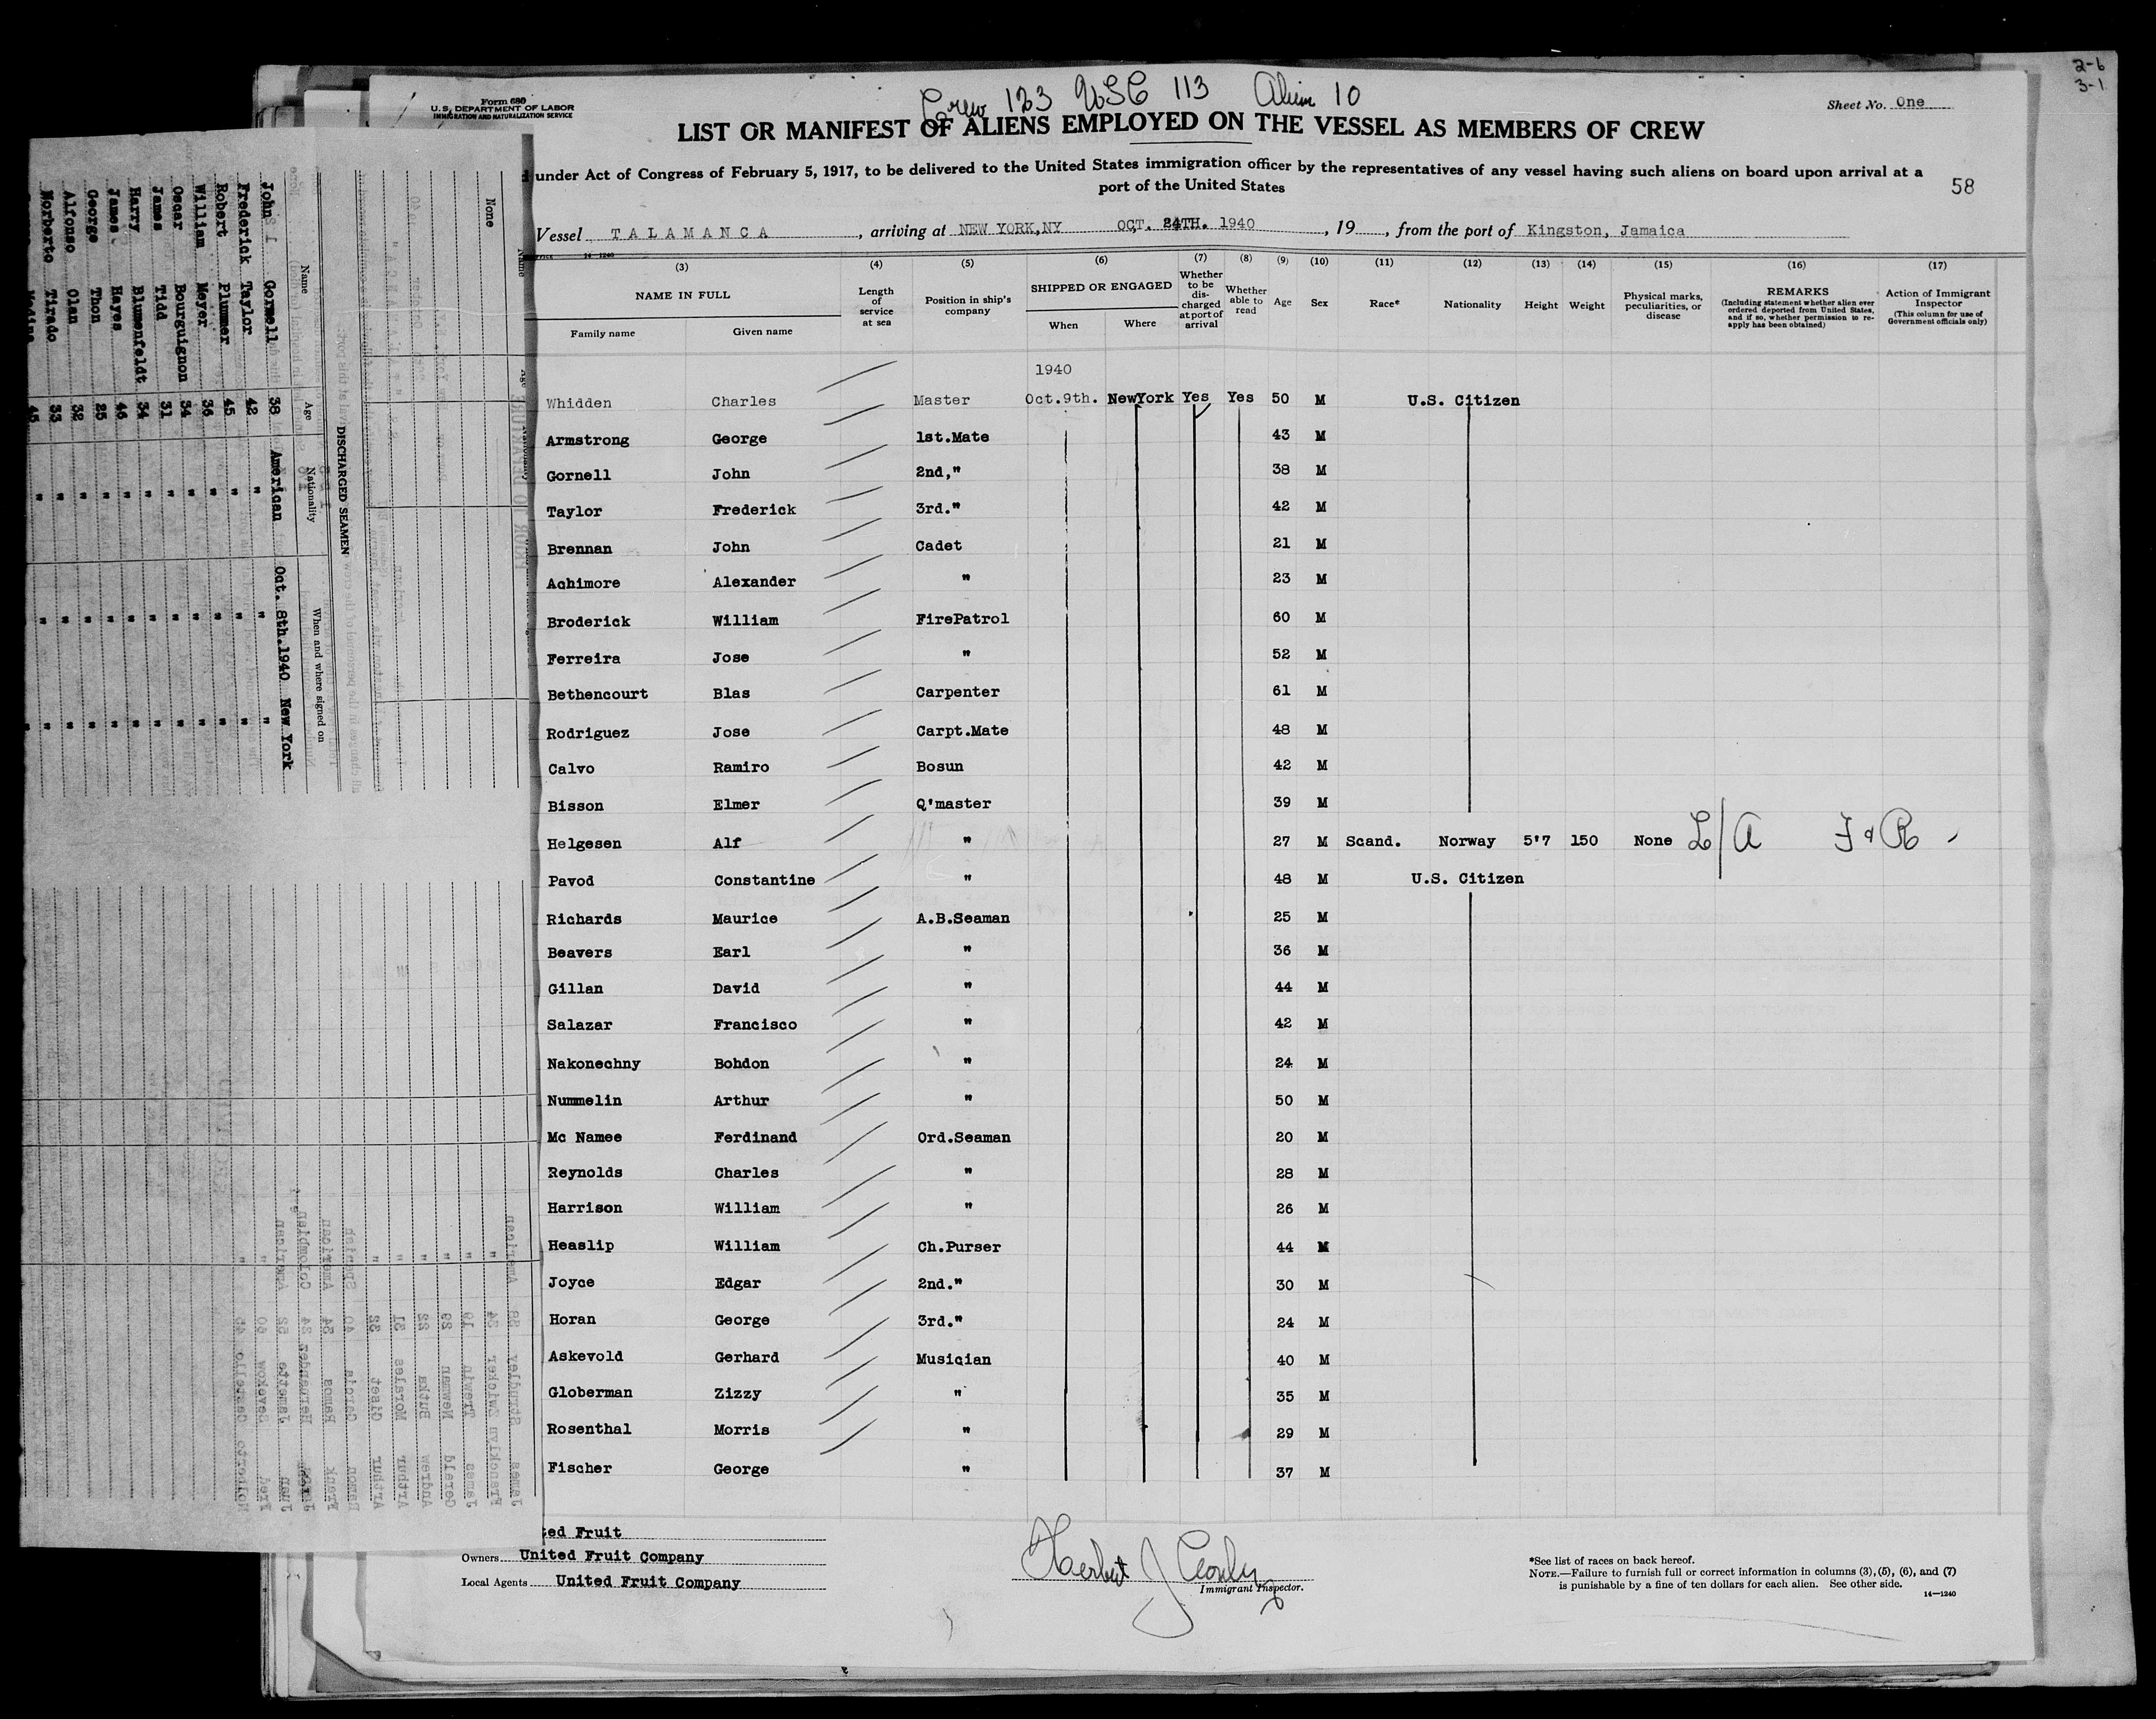 2-6
3-1
Crew 123 USC 113 Alien 10
Form 680
U.S. DEPARTMENT OF LABOR
IMMIGRATION AND NATURALIZATION SERVICE
Sheet No. One
LIST OR MANIFEST OF ALIENS EMPLOYED ON THE VESSEL AS MEMBERS OF CREW
under Act of Congress of February 5, 1917, to be delivered to the United States immigration officer by the representatives of any vessel having such aliens on board upon arrival at a
port of the United States
58
Vessel TALAMANCA, arriving at NEW YORK,NY OCT. 24TH. 1940, 19, from the port of Kingston, Jamaica
(3) (4) (5) (6) (7) (8) (9) (10) (11) (12) (13) (14) (15) (16) (17)
NAME IN FULL
Family name Given name
Length of service at sea
Position in ship's company
SHIPPED OR ENGAGED
When Where
Whether to be discharged at port of arrival
Whether able to read
Age Sex Race* Nationality Height Weight
Physical marks, peculiarities, or disease
REMARKS
(Including statement whether alien ever ordered deported from United States, and if so, whether permission to reapply has been obtained)
Action of Immigrant Inspector
(This column for use of Government officials only)
1940
Whidden Charles Master Oct.9th. NewYork Yes Yes 50 M U.S. Citizen
Armstrong George 1st.Mate 43 M
Gornell John 2nd," 38 M
Taylor Frederick 3rd." 42 M
Brennan John Cadet 21 M
Achimore Alexander " 23 M
Broderick William FirePatrol 60 M
Ferreira Jose " 52 M
Bethencourt Blas Carpenter 61 M
Rodriguez Jose Carpt.Mate 48 M
Calvo Ramiro Bosun 42 M
Bisson Elmer Q'master 39 M
Helgesen Alf " 27 M Scand. Norway 5'7 150 None L/A F & R
Pavod Constantine " 48 M U.S. Citizen
Richards Maurice A.B.Seaman 25 M
Beavers Earl " 36 M
Gillan David " 44 M
Salazar Francisco " 42 M
Nakonechny Bohdon " 24 M
Nummelin Arthur " 50 M
Mc Namee Ferdinand Ord.Seaman 20 M
Reynolds Charles " 28 M
Harrison William " 26 M
Heaslip William Ch.Purser 44 M
Joyce Edgar 2nd." 30 M
Horan George 3rd." 24 M
Askevold Gerhard Musician 40 M
Globerman Zizzy " 35 M
Rosenthal Morris " 29 M
Fischer George " 37 M
ted Fruit
Owners United Fruit Company
Local Agents United Fruit Company
Herbert J
Immigrant Inspector.
*See list of races on back hereof.
NOTE.—Failure to furnish full or correct information in columns (3), (5), (6), and (7)
is punishable by a fine of ten dollars for each alien. See other side.
14—1240
None
DISCHARGED SEAMEN
Name Age Nationality When and where signed on
John Gornell 38 American Oct. 8th.1940 New York
Frederick Taylor 42 " " "
Robert Plummer 45 " " "
William Meyer 36 " " "
Oscar Bourguignon 34 " " "
James Tidd 31 " " "
Harry Blumenfeldt 34 " " "
James Hayes 46 " " "
George Thon 25 " " "
Alfonso Olan 32 " " "
Norberto Tirado 33 " " "